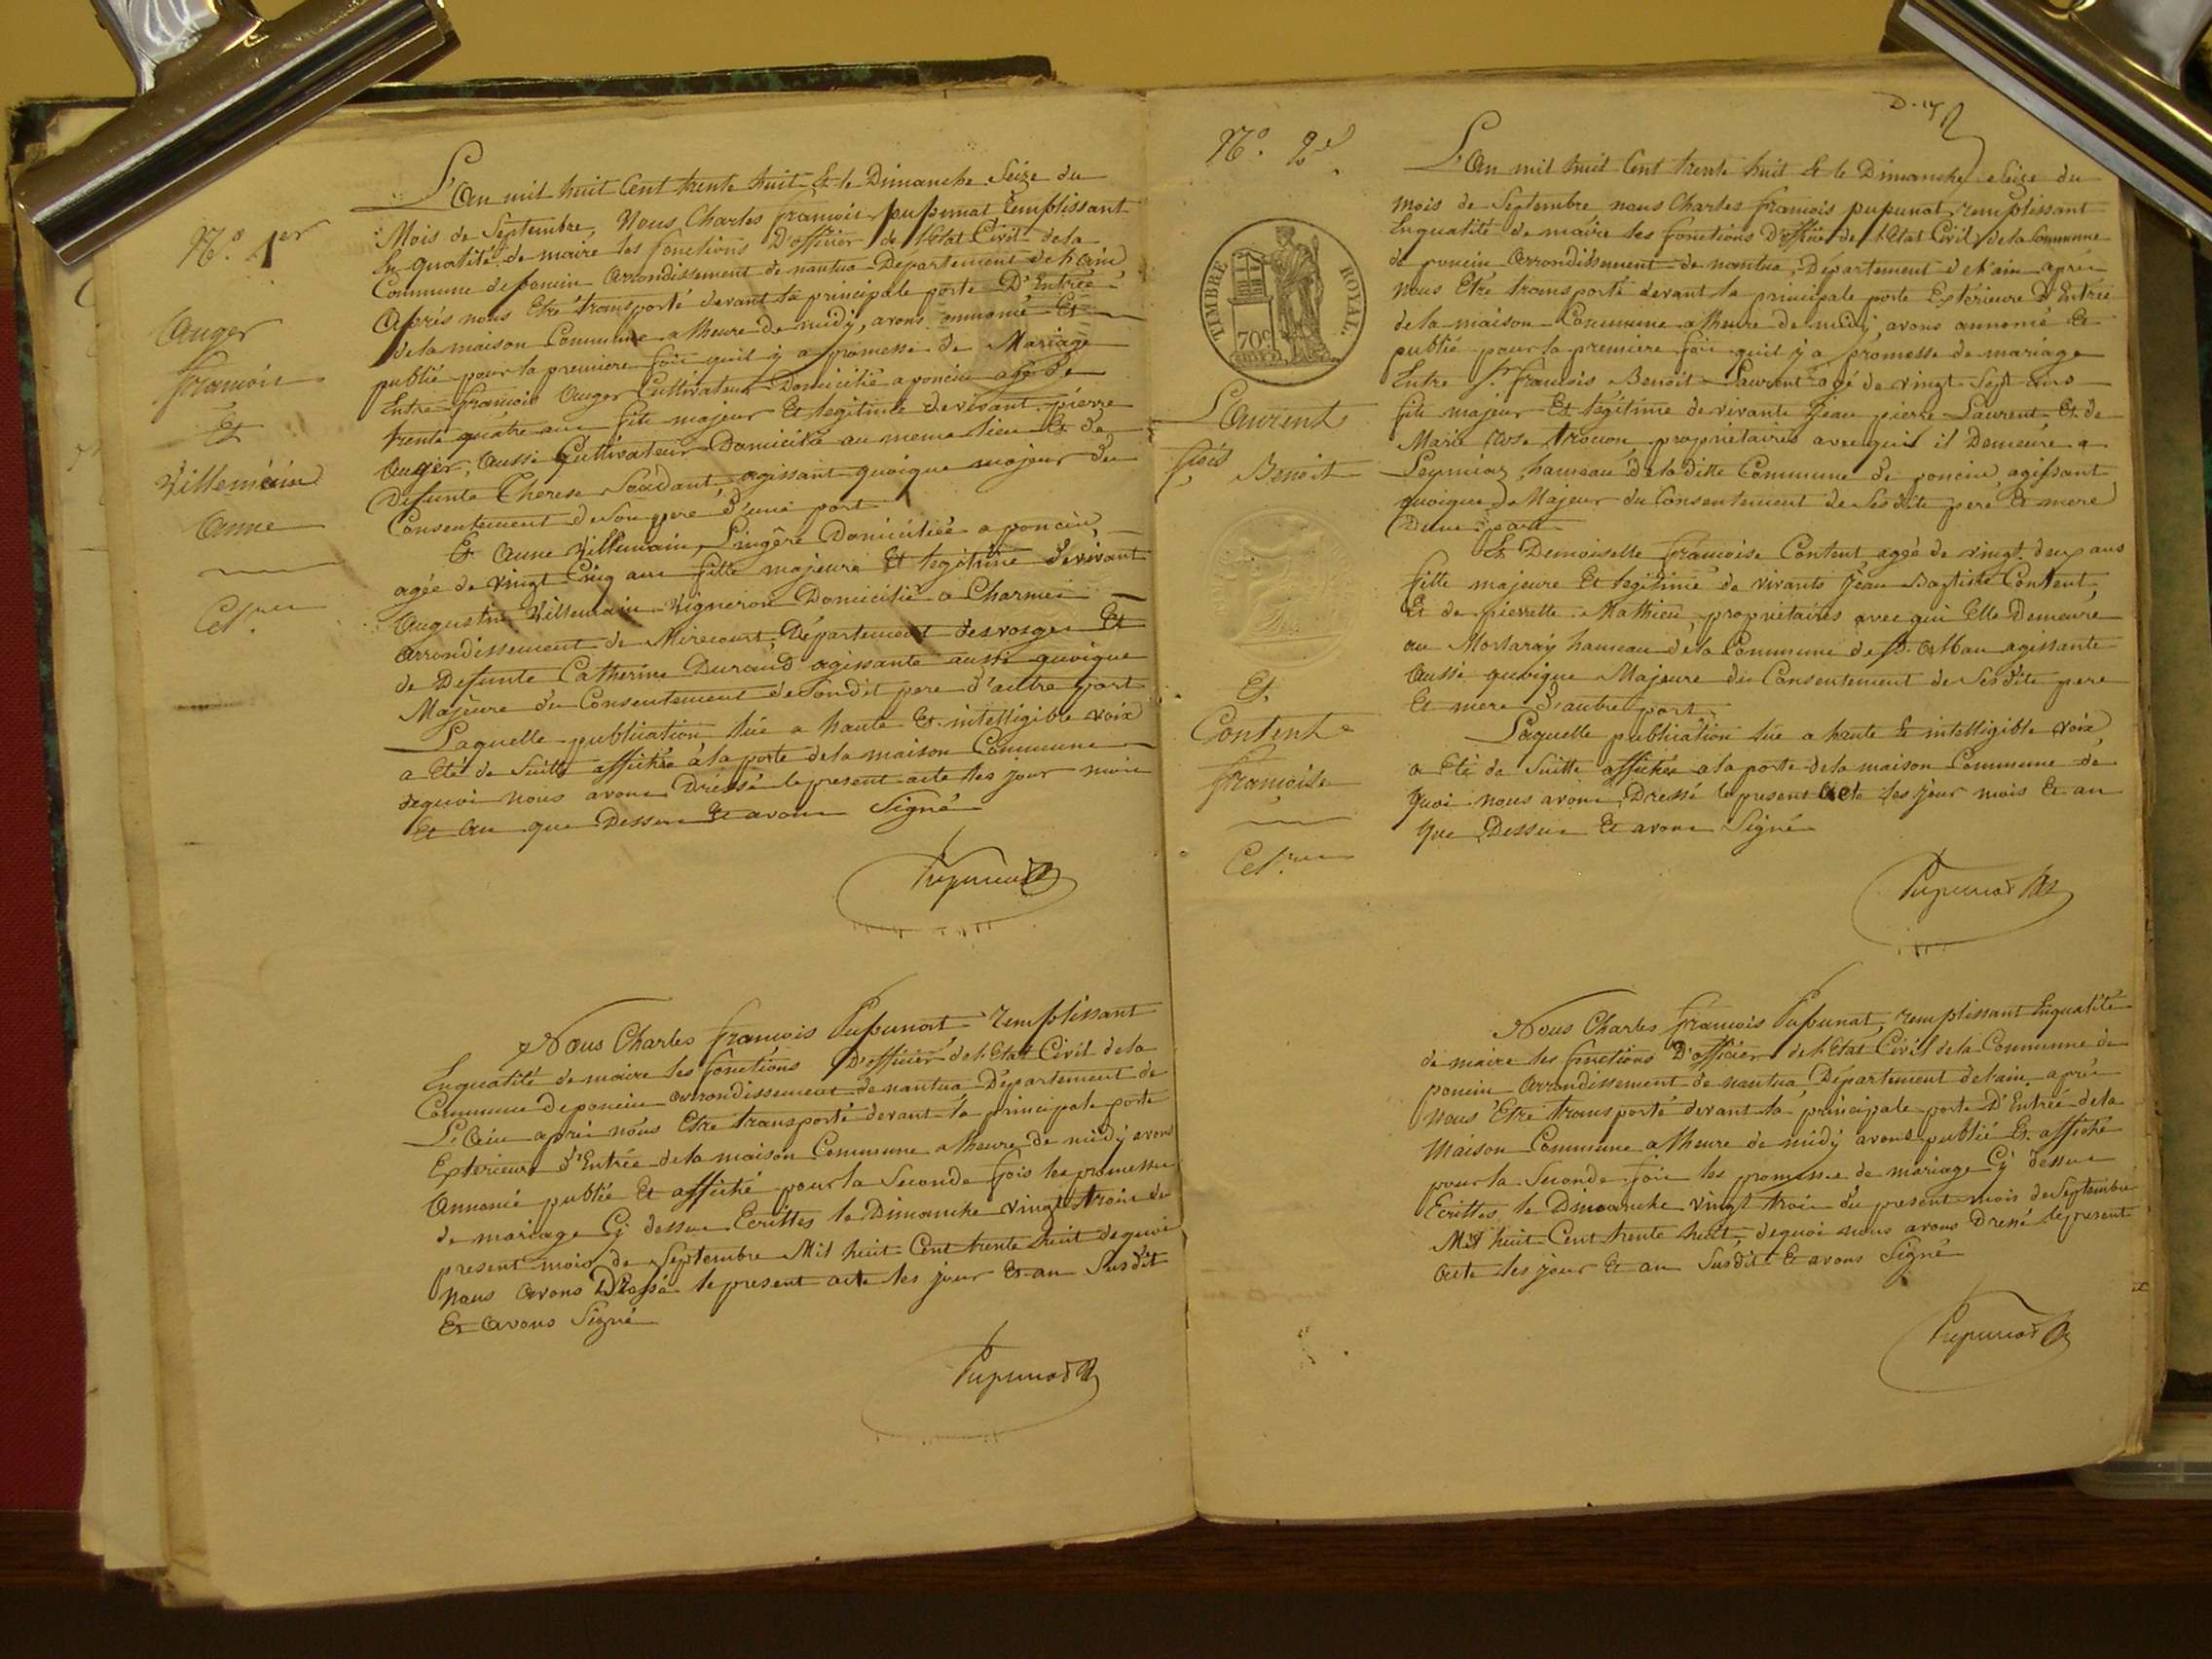 N.o 1er
Auger
françois
Et
Villemain
Anne
Cel.on
L'an mil huit Cent trente huit Et le Dimanche Seize du
Mois de Septembre, Nous Charles françois pupunat Remplissant
En qualité de maire les fonctions D'officier de l'Etat Civil dela
Commune de poncin arrondissement de nantua Département de l'ain
Après nous Etre transporté devant la principale porte D'Entrée
dela maison Commune a lheure de midy, avons annoncé Et
publié pour la premiere fois quil y a promesse de Mariage
Entre françois Auger Cultivateur Domicilié a poncin agé de
trente quatre ans fils majeur Et legitime de vivant pierre
Auger, aussi Cultivateur Domicilié au meme lieu Et de
Defunte Therese Soudant, agissant quoique majeur du
Consentement de Son pere d'une part
Et Anne Villemain, Lingère Domiciliée a poncin,
agée de vingt Cinq ans fille majeure Et legitime de vivant
Augustin Villemain Vigneron Domicilié a Charmes
arrondissement de Mirecourt Département des vosges Et
de Defunte Catherine Durand agissante aussi quoique
Majeure du Consentement de Son dit pere d'autre part
Laquelle publication lue a haute Et intelligible voix
a Eté de Suitte affichée à la porte dela maison Commune
dequoi nous avons Dressé le present acte les jour mois
Et an que Dessus Et avons Signé
Pupunat
Nous Charles françois Pupunat remplissant
Enqualité de maire les fonctions D'officier de l'Etat Civil dela
Commune de poncin arrondissement de nantua Département de
L'Ain après nous Etre transporté devant la principale porte
Exterieure d'Entrée dela maison Commune a lheure de midy avons
Annoncé publié Et affiché pour la Seconde fois les promesses
de mariage Cy dessus Ecrittes le Dimanche vingt trois du
present mois de Septembre Mil huit Cent trente huit dequoi
Nous avons Dressé le present acte les jour Et an Susdit
Et avons Signé
Pupunat
N.o 2e
TIMBRE ROYAL.
70c
Laurent
fçois
Benoit
Et
Content
françoise
Cel.on
L'An mil huit Cent trente huit Et le Dimanche Seize du
mois de Septembre nous Charles françois pupunat remplissant
Enqualité de maire les fonctions D'officier de l'Etat Civil dela Commune
de poncin arrondissement de nantua, Département de l'ain après
nous Etre transporté devant la principale porte Exterieure D'Entrée
dela maison Commune a lheure de midy, avons annoncé Et
publié pour la premiere fois quil y a promesse de mariage
Entre Sr. françois Benoit Laurent agé de vingt Sept ans
fils majeur Et legitime de vivants Jean pierre Laurent Et de
Marie rose propriétaires avec qui il Demeure a
Leymiaz hameau de la ditte Commune de poncin, agissant
quoique Majeur du Consentement de Ses dits pere Et mere
Dune part
Et Demoiselle françoise Content agée de vingt deux ans
fille majeure Et legitime de vivants Jean Baptiste Content
Et de pierrette Mathieu, propriétaires avec qui Elle Demeure
au Mortaray hameau dela Commune de St. Alban agissante
aussi quoique Majeure du Consentement de Ses dits pere
Et mere d'autre part.
Laquelle publication lue a haute Et intelligible voix
a Eté de Suitte affichée a la porte dela maison Commune de
quoi nous avons Dressé le present acte les jour mois Et an
que Dessus Et avons Signé
Pupunat
Nous Charles françois Pupunat, remplissant Enqualité
de maire les fonctions D'officier de l'Etat Civil dela Commune de
poncin arrondissement de nantua Département de l'ain après
nous Etre transporté devant la principale porte D'Entrée dela
Maison Commune a lheure de midy avons publié Et affiché
pour la Seconde fois les promesses de mariage Cy dessus
Ecrittes le Dimanche vingt trois du present mois de Septembre
Mil huit Cent trente huit, dequoi nous avons Dressé le present
acte les jour Et an Susdit Et avons Signé
Pupunat